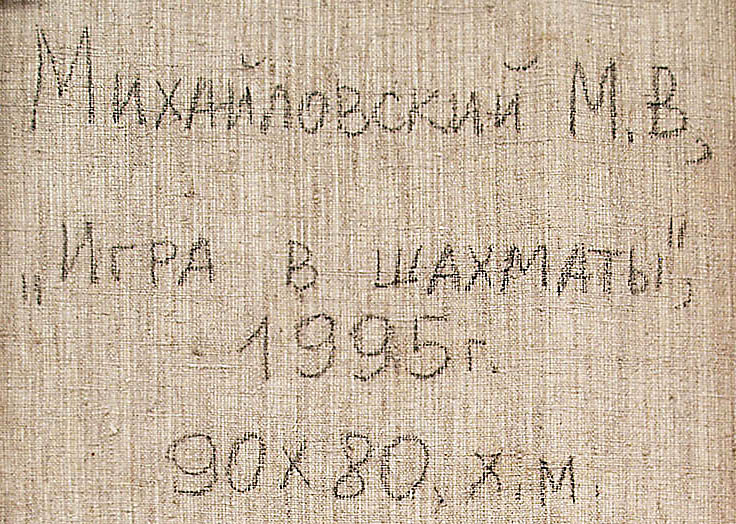 Михайловский М.В,
„Игра в шахматы",
1995г.
90х80, х.м.